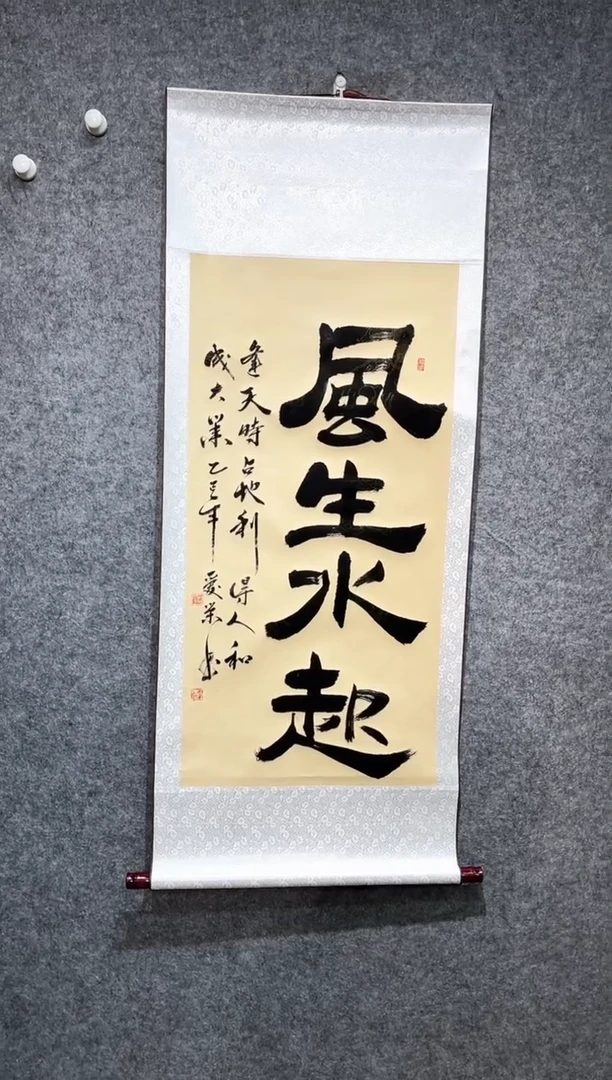 風生水起
逢天時占地利得人和
成大業乙巳年愛荣书